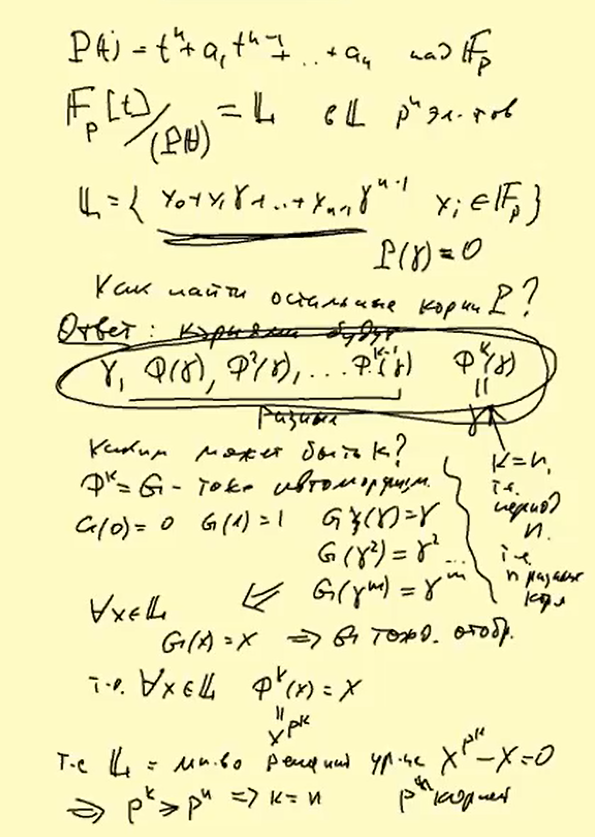 P(t) = tⁿ + a₁tⁿ⁻¹ + .. + aₙ над 𝔽ₚ
𝔽ₚ[t]/(P(t)) = 𝕃 в 𝕃 pⁿ эл-тов
𝕃 = { x₀ + x₁γ + .. + xₙ₋₁γⁿ⁻¹ xᵢ ∈ 𝔽ₚ }
P(γ) = 0
Как найти остальные корни P?
Ответ: корнями будут
γ, Φ(γ), Φ²(γ), ... Φᵏ⁻¹(γ) Φᵏ(γ)
||
разные γ
Каким может быть k?
Φᵏ = G - тоже автоморфизм.
G(0) = 0 G(1) = 1 G(γ) = γ
G(γ²) = γ² ...
G(γᵐ) = γᵐ
k = n,
т.е.
период
n.
т.е.
n разных
корн
∀x∈𝕃 ⇙
G(x) = x ⇒ G тожд. отобр.
т.е. ∀x∈𝕃 Φᵏ(x) = x
||
x^(pᵏ)
т.е 𝕃 = мн-во решений ур-ия x^(pᵏ) - x = 0
⇒ pᵏ ≥ pⁿ ⇒ k = n корней